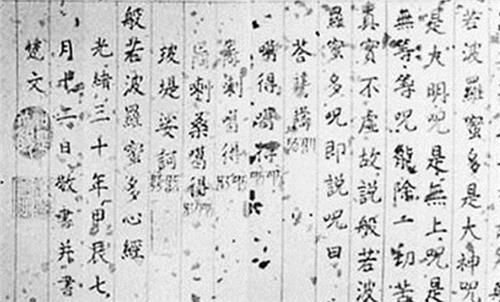 若波羅蜜多是大神咒
是大明咒是無上咒是
無等等咒能除一切苦
真實不虛故說般若波
羅蜜多咒即說咒曰
噶得噶得
剌噶得
剌桑噶得
堤娑訶
般若波羅蜜多心經
光緒三十年甲辰七
月日敬書并書
文